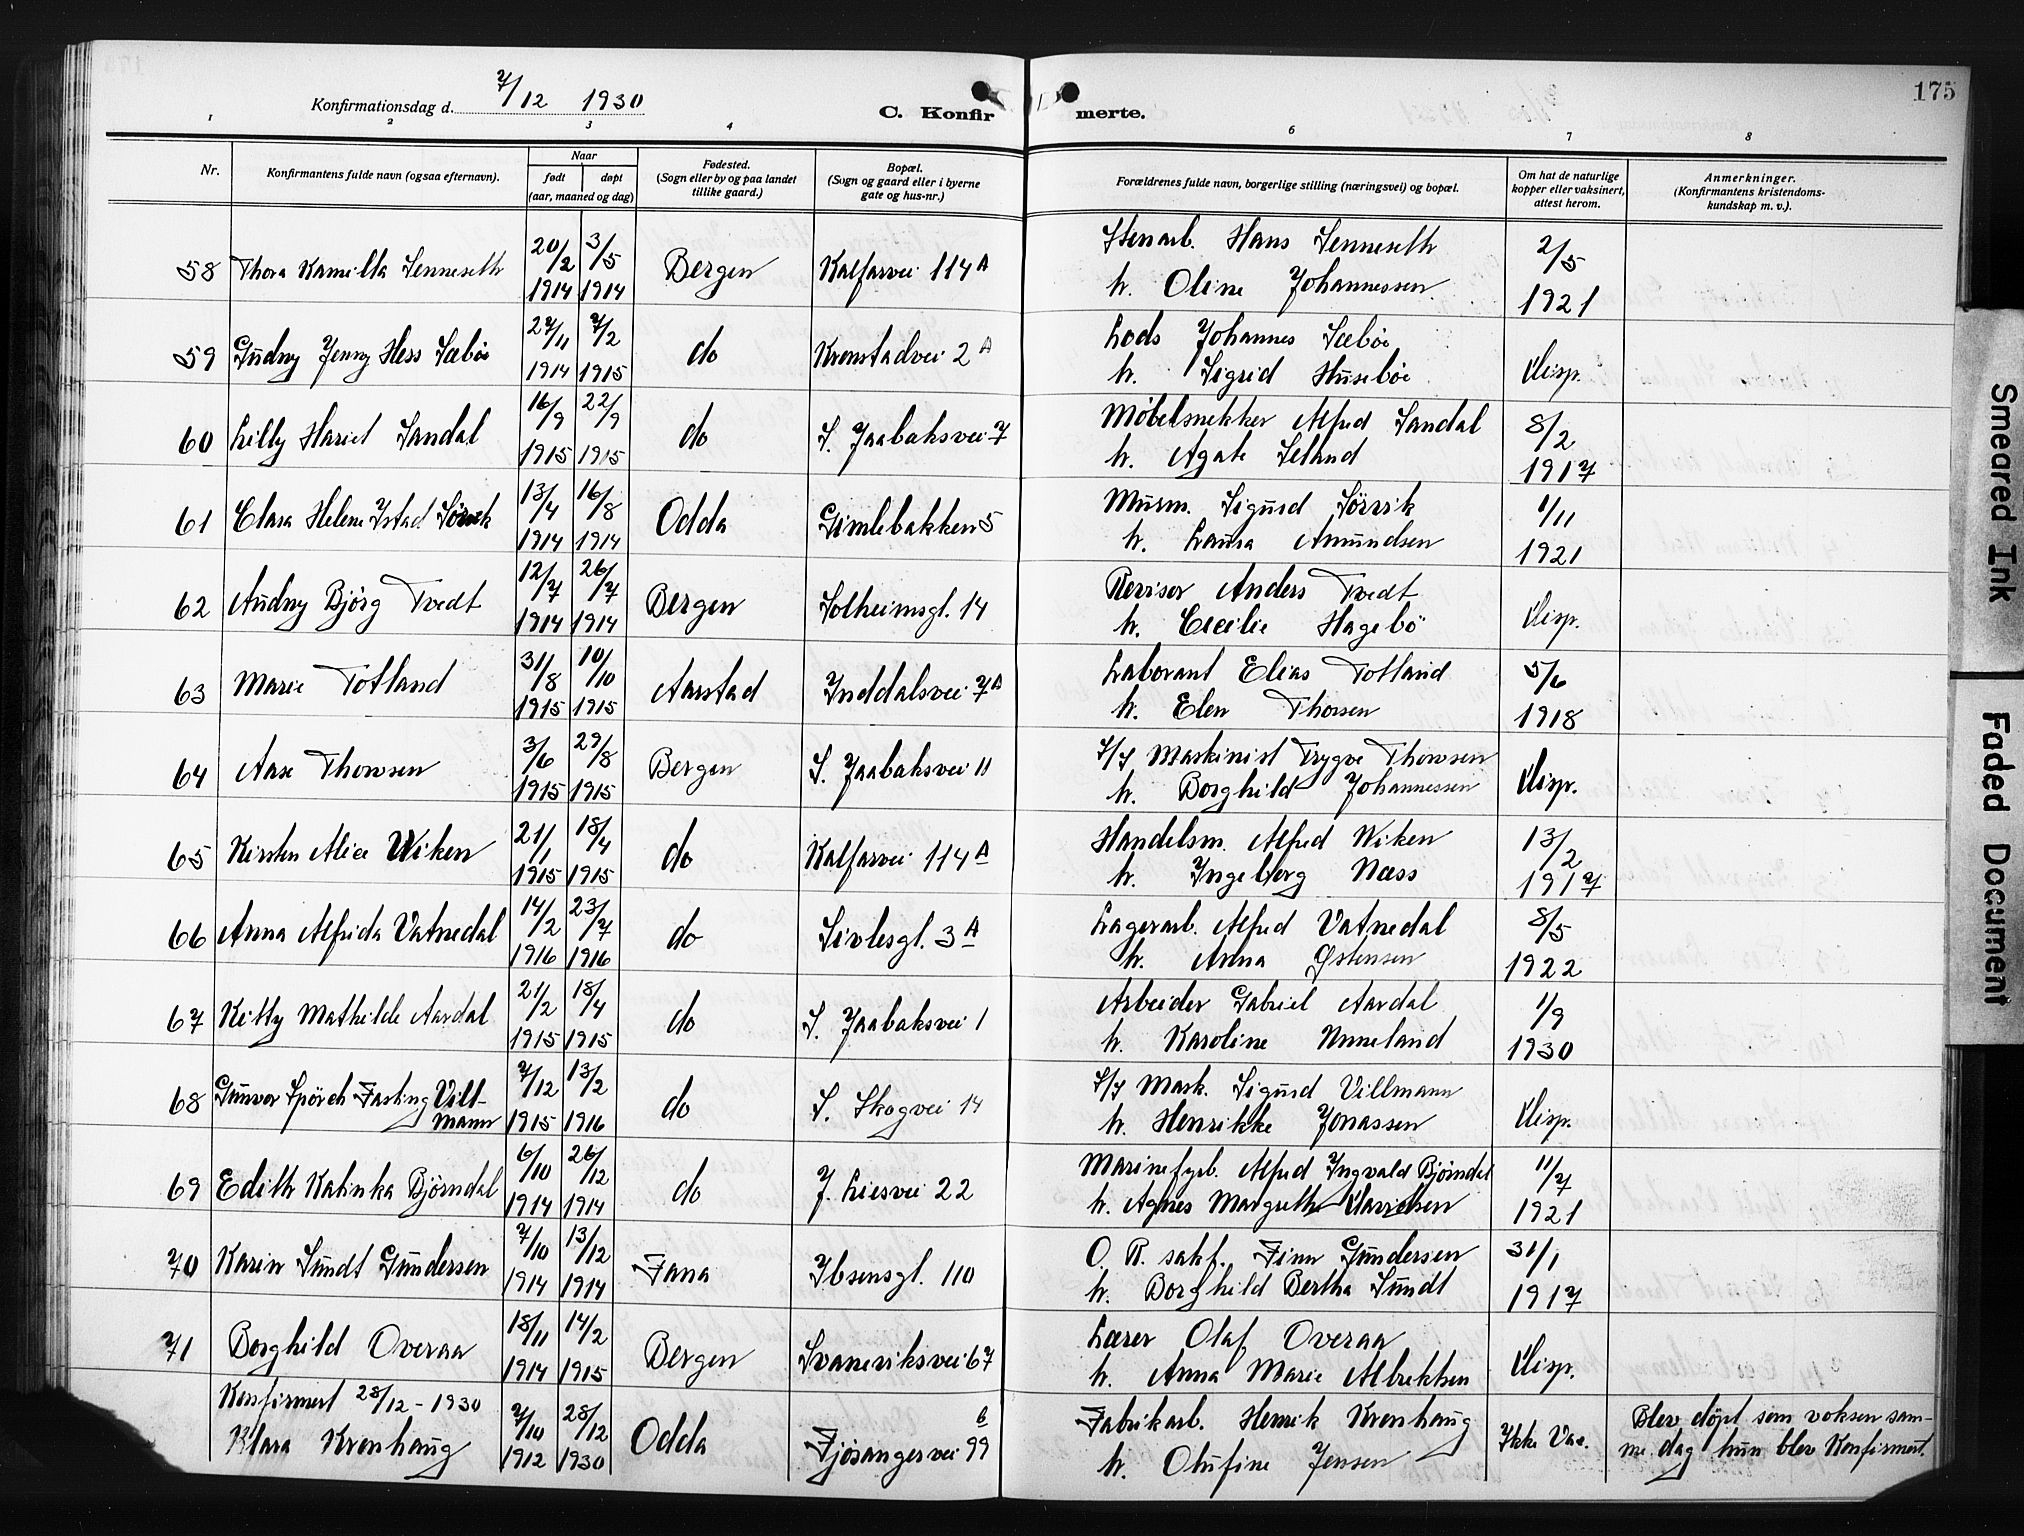 175
Konfirmationsdag d. 7/12 1930
C. Konfirmerte.
1 2 3 4 5 6 7 8
Nr.
Konfirmantens fulde navn (ogsaa efternavn).
Naar
født døpt
(aar, maaned og dag)
Fødested.
(Sogn eller by og paa landet
tillike gaard.)
Bopæl.
(Sogn og gaard eller i byerne
gate og hus-nr.)
Forældrenes fulde navn, borgerlige stilling (næringsvei) og bopæl.
Om hat de naturlige
kopper eller vaksinert,
attest herom.
Anmerkninger.
(Konfirmantens kristendoms-
kundskap m. v.).
58 Thora Kamilla Senneseth 20/2 1914 3/5 1914 Bergen Kalfarvei 114 A
Stenarb. Hans Senneseth
h. Oline Johannessen
2/5 1921
59 Gudny Jenny Hess Sæbøe 27/11 1914 7/2 1915 do Kronstadvei 2 A
Lods Johannes Sæbøe
h. Sigrid Husebøe
Disp.
60 Lilly Hariet Sandal 16/9 1915 22/9 1915 do S. Jaabaksvei 7
Møbelsnekker Alfred Sandal
h. Agate Seland
8/2 1917
61 Clara Helene Ystad Sörvik 13/4 1914 16/8 1914 Odda Gimlebakken 5
Murm. Sigurd Sörvik
h. Laura Amundsen
1/11 1921
62 Audny Bjørg Tvedt 12/7 1914 26/7 1914 Bergen Solheimsgt. 14
Revisor Anders Tvedt
h. Cecilie Hagebö
Disp.
63 Marie Totland 31/8 1915 10/10 1915 Aarstad Inddalsvei 7 A
Laborant Elias Totland
h. Elen Thorsen
5/6 1918
64 Aase Thowsen 3/6 1915 29/8 1915 Bergen S. Jaabaksvei 11
S/S Maskinist Trygve Thowsen
h. Borghild Johannessen
Disp.
65 Kirsten Alice Wiken 21/1 1915 18/4 1915 do Kalfarvei 114 A
Handelsm. Alfred Wiken
h. Ingeborg Næss
13/2 1917
66 Anna Alfrida Vatnedal 14/2 1916 23/7 1916 do Sivlesgt. 3 A
Lagerarb. Alfred Vatnedal
h. Anna Østensen
8/5 1922
67 Kitty Mathilde Aardal 21/2 1915 18/4 1915 do S. Jaabaksvei 1
Arbeider Gabriel Aardal
h. Karoline Unneland
1/9 1930
68 Gunvor Spörch Fasting Vill-
mann 7/12 1915 13/2 1916 do S. Skogvei 14
S/S Mask. Sigurd Villmann
h. Henrikke Jonassen
Disp.
69 Edith Katinka Björndal 6/10 1914 26/12 1914 do J. Liesvei 22
Marinefyrb. Alfred Ingvald Björndal
h. Agnes Margrethe
11/7 1921
70 Karin Sundt Gundersen 7/10 1914 13/12 1914 Fana Ibsensgt. 110
O. R. sakf. Finn Gundersen
h. Borghild Bertha Sundt
31/1 1917
71 Borghild Overaa 18/11 1914 14/2 1915 Bergen Svaneviksvei 67
Lærer Olaf Overaa
h. Anna Marie Albrektsen
Disp.
Konfirmert 28/12 - 1930
Klara Kronhaug 7/10 1912 28/12 1930 Odda Fjösangervei 99 b
Fabrikarb. Henrik Kronhaug
h. Olufine Jensen
Ikke Vac.
Blev döpt som voksen sam-
me dag hun blev Konfirmert.
Smeared Ink
Faded Document